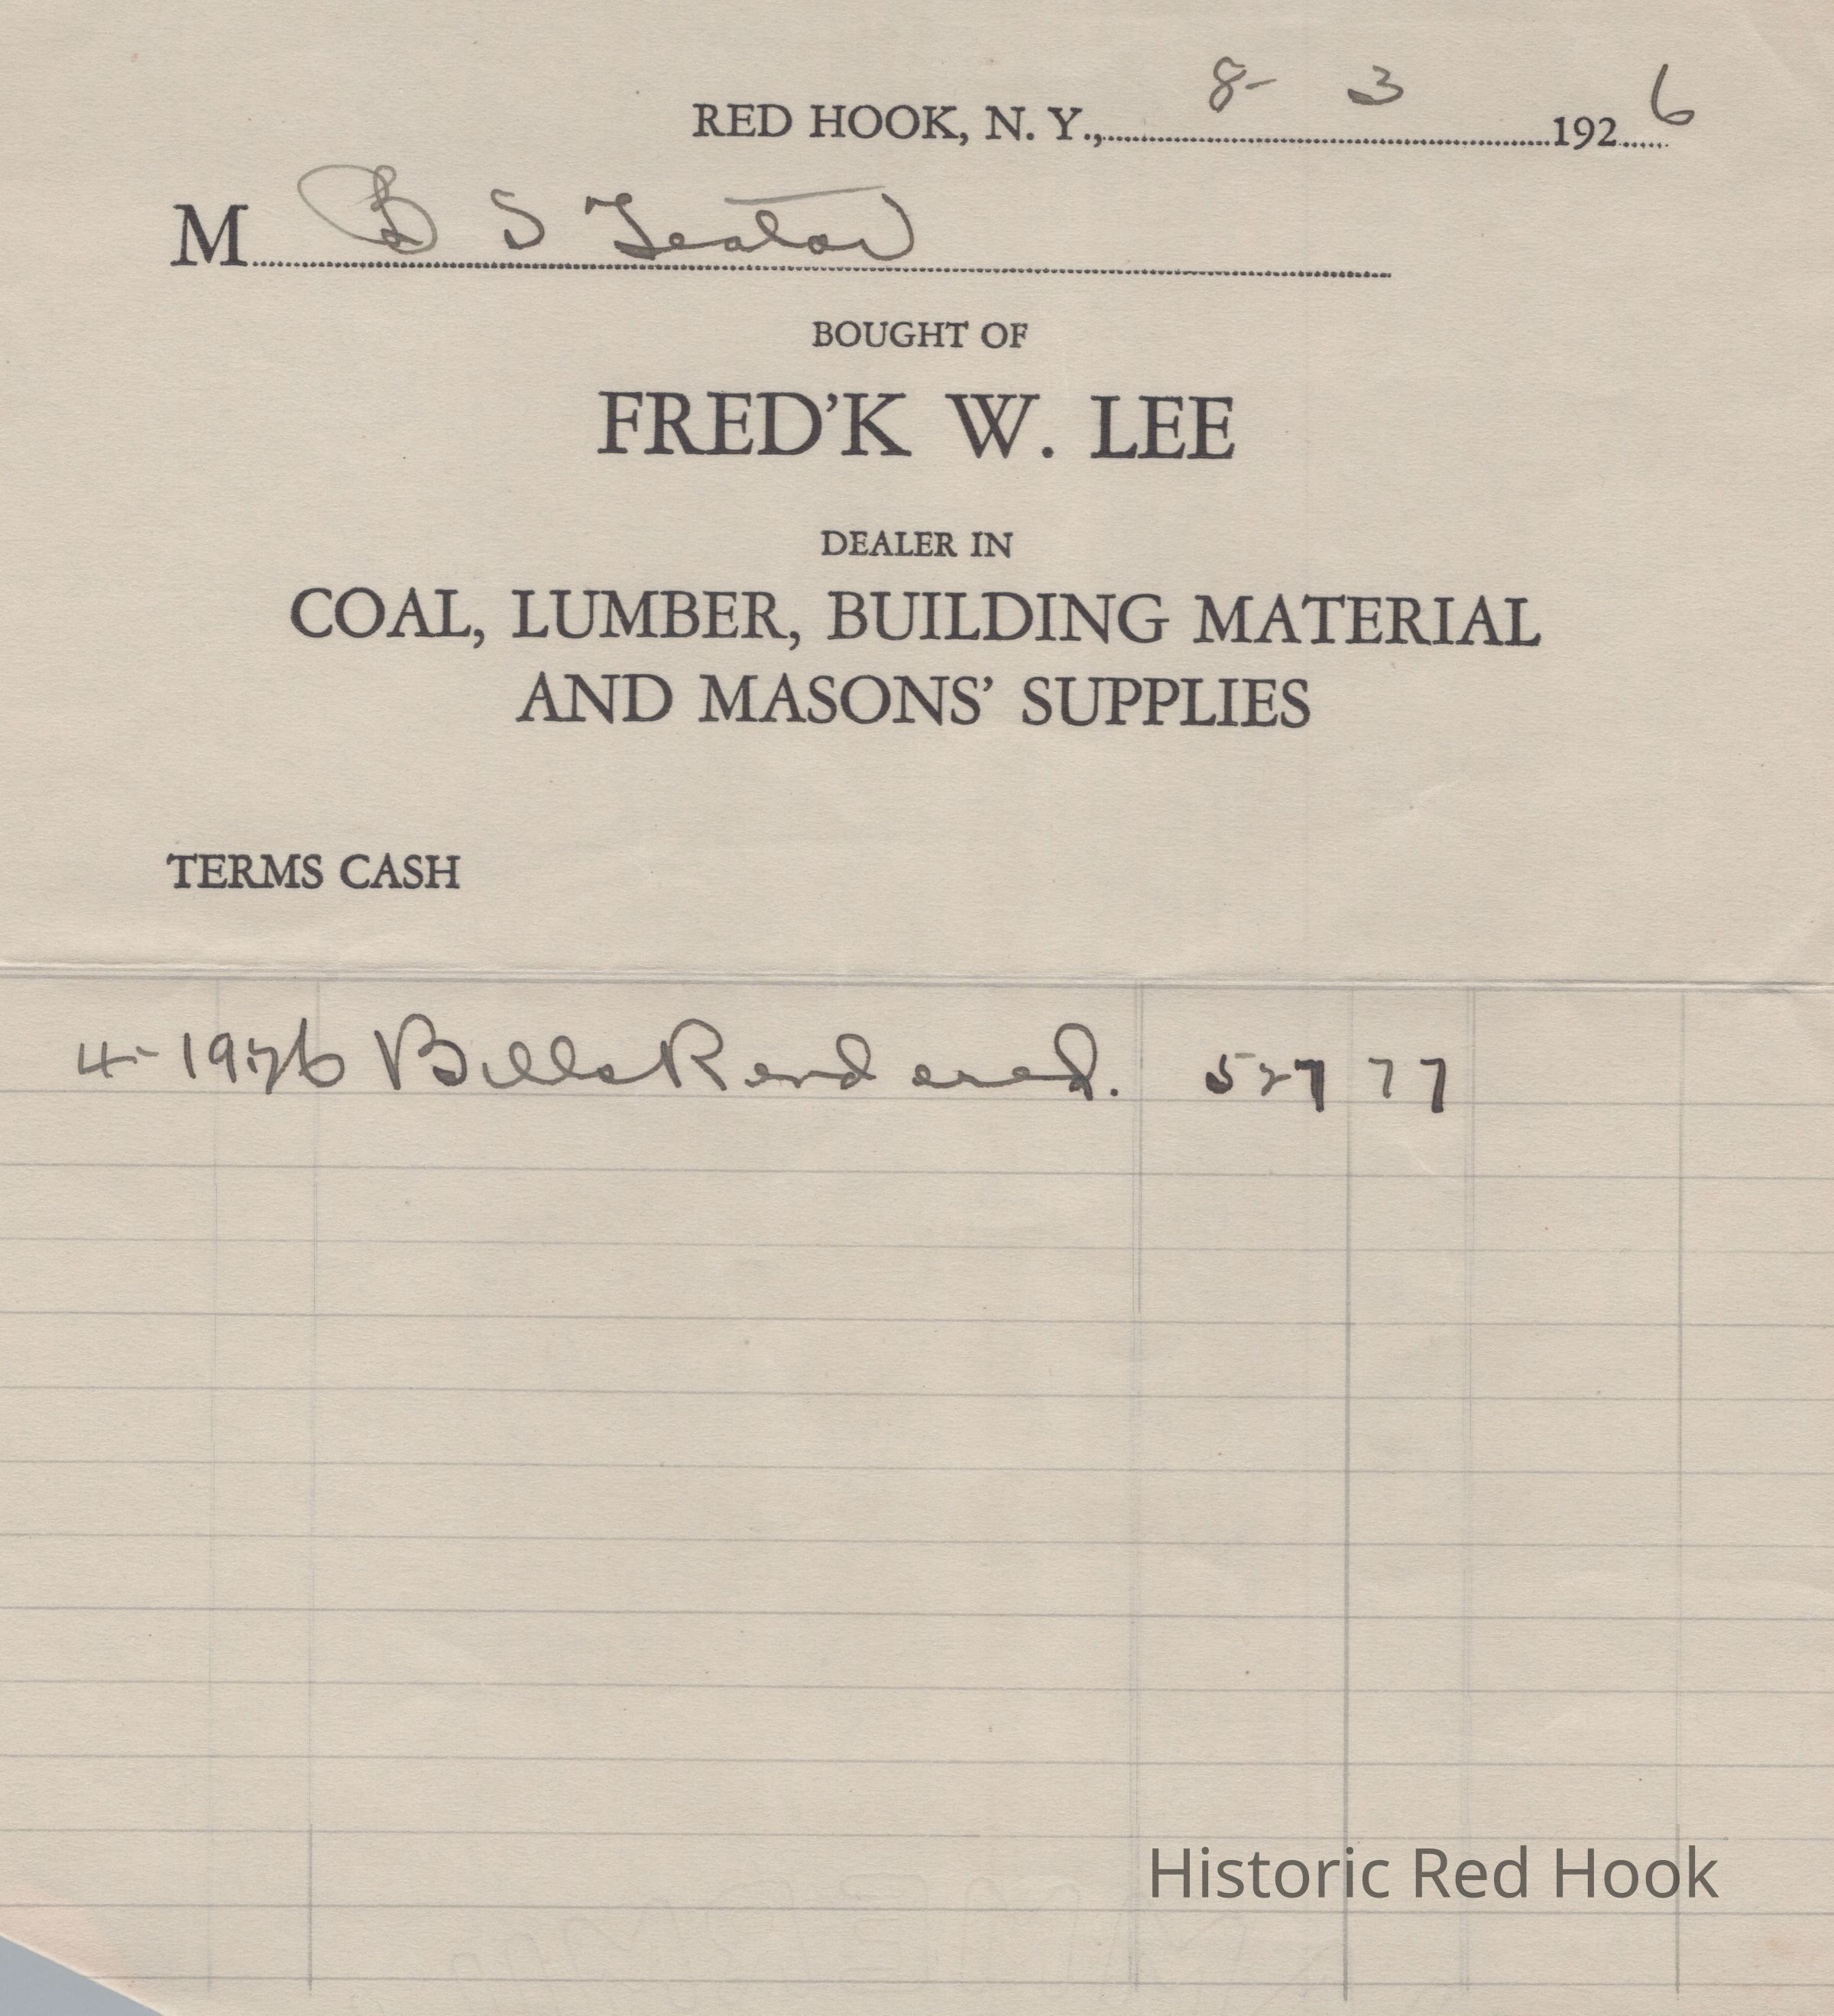 RED HOOK, N. Y., 8- 3 1926
M B S Teator
BOUGHT OF
FRED'K W. LEE
DEALER IN
COAL, LUMBER, BUILDING MATERIAL
AND MASONS' SUPPLIES
TERMS CASH
4-1926 Bills Rendered. 527 77
Historic Red Hook